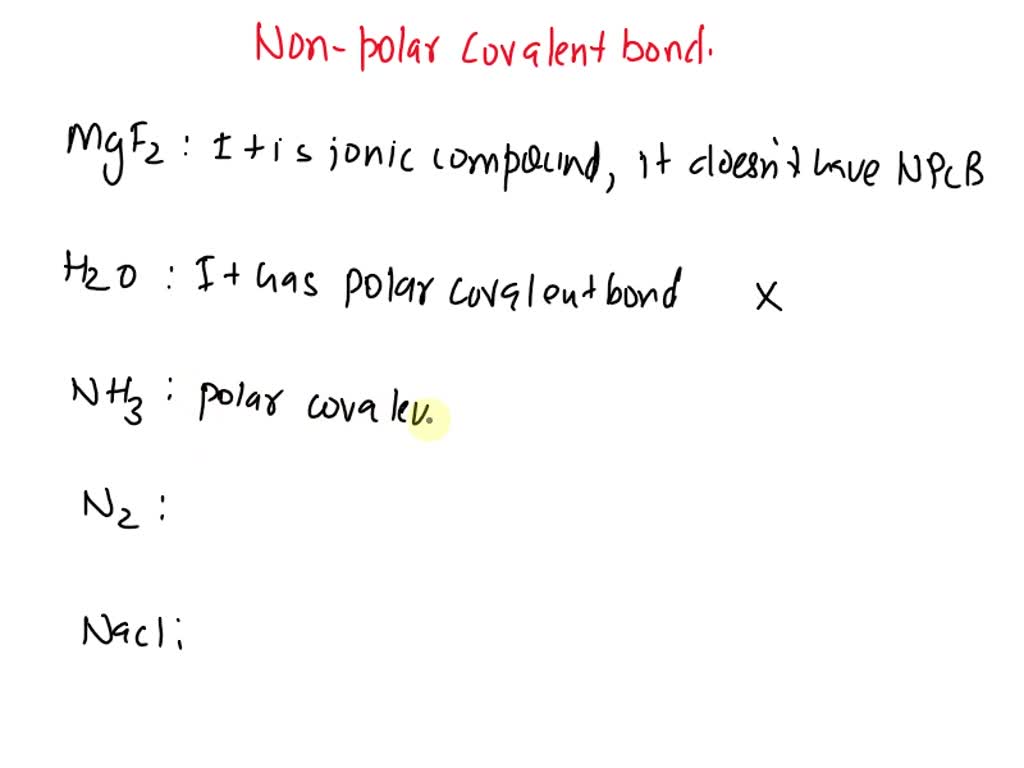 Non-polar covalent bond.
MgF2 : It is ionic compound, it doesn't have NPCB
H2O : It has polar covalent bond X
NH3 : polar covalen
N2 :
Nacl :